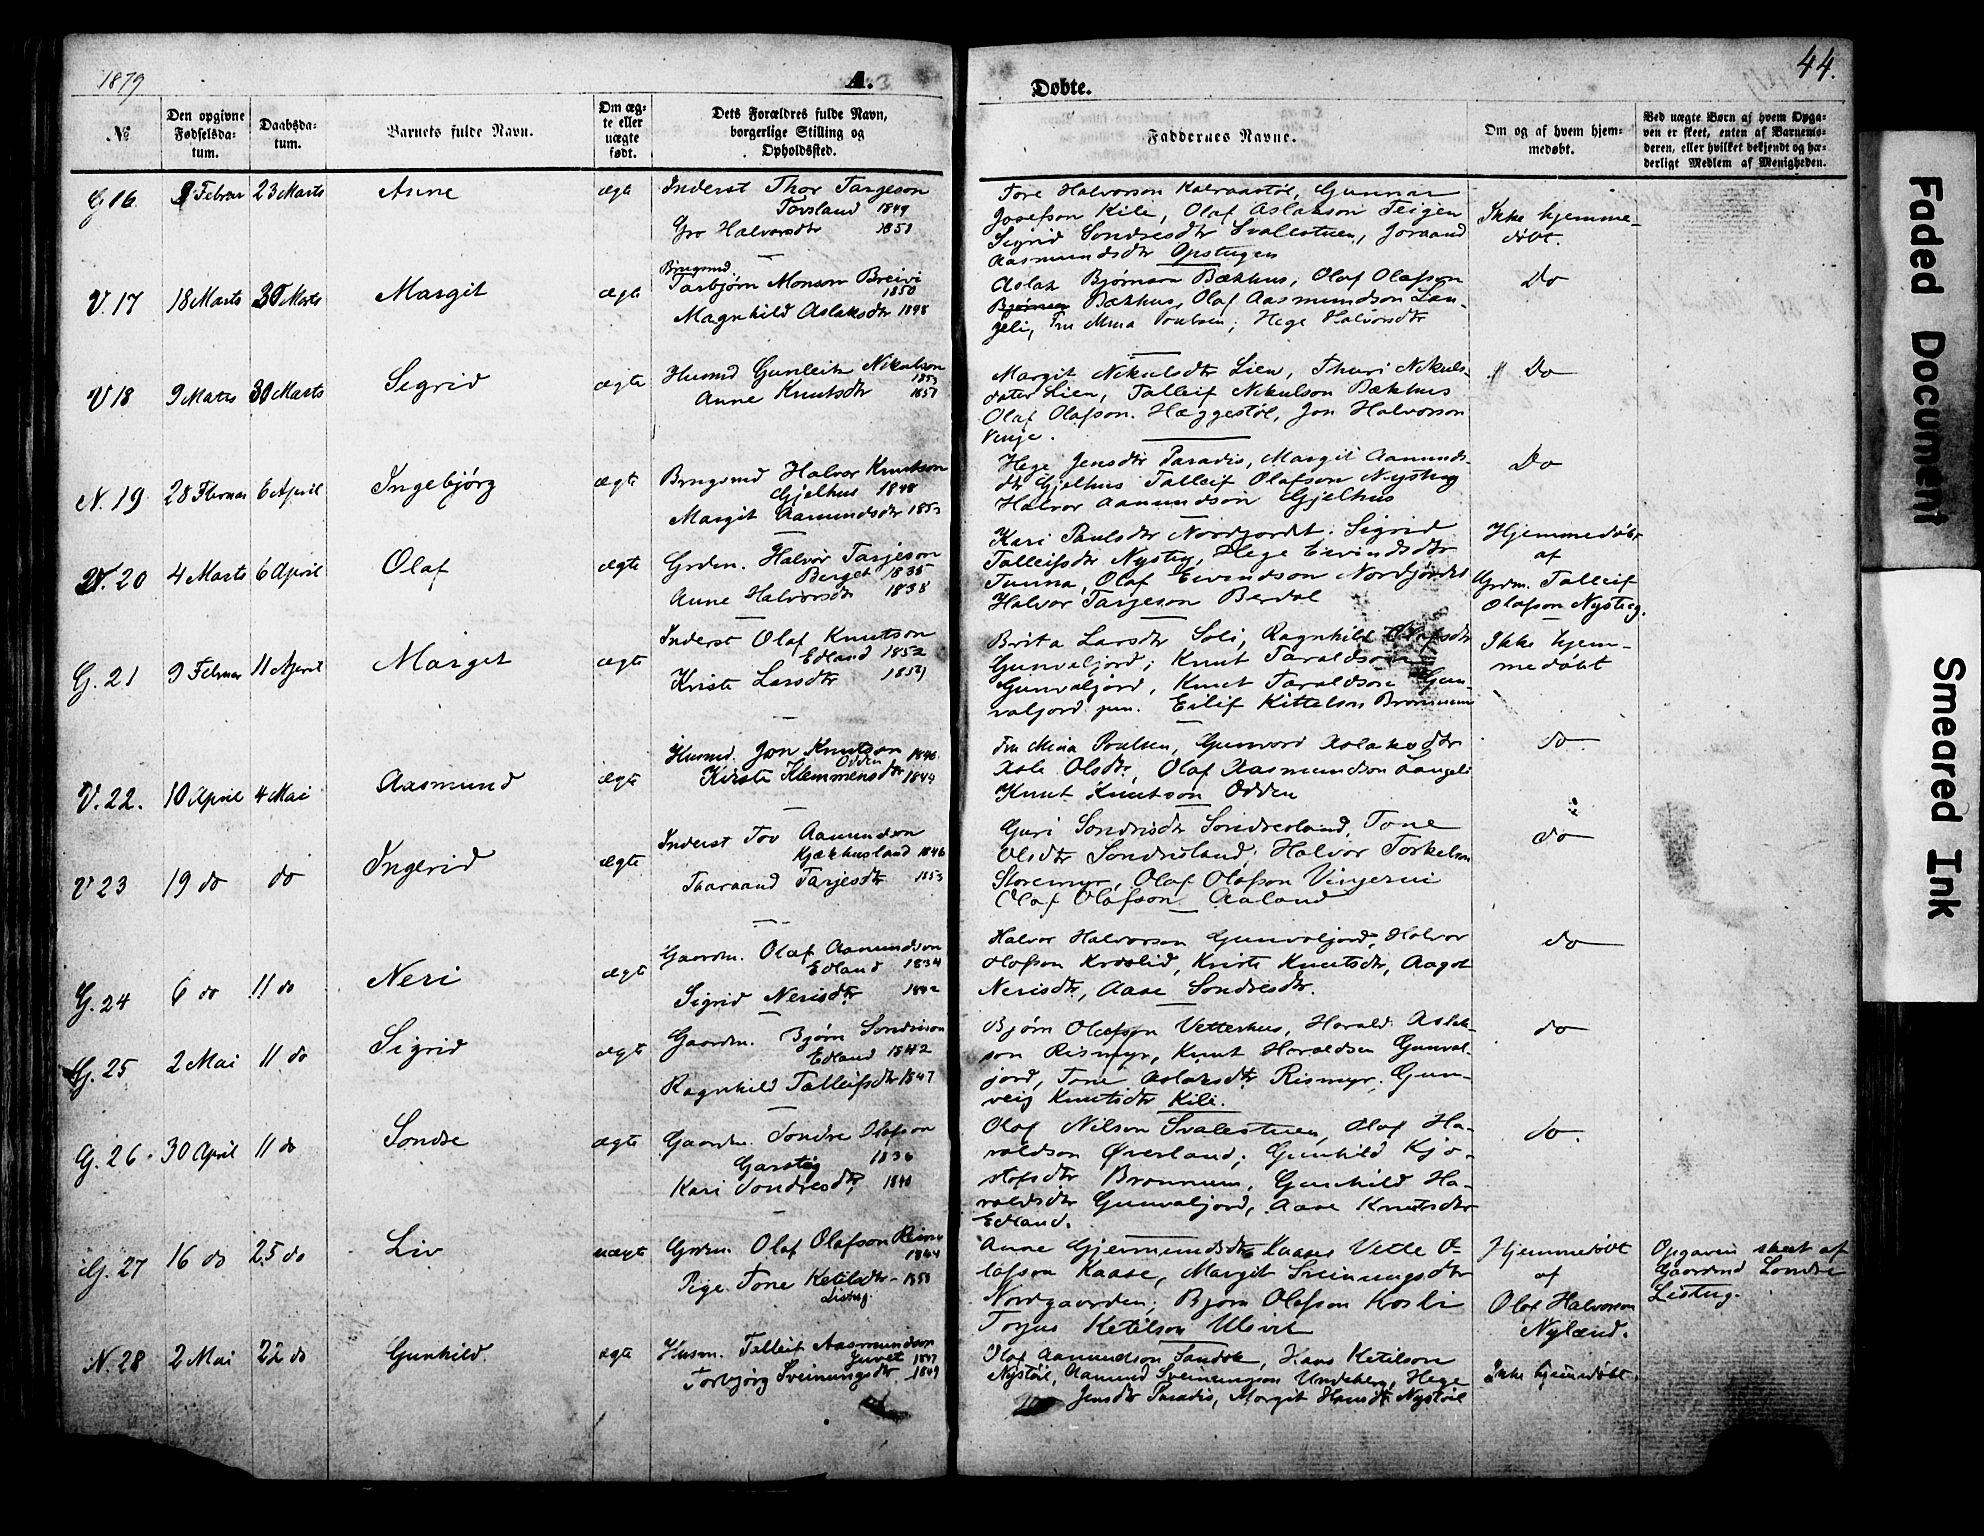 1879
A.
3
Døbte.
44.
№
Den opgivne Fødselsdatum.
Daabsdatum.
Barnets fulde Navn.
Om ægte eller uægte født.
Dets Forældres fulde Navn, borgerlige Stilling og Opholdssted.
Faddernes Navne.
Om og af hvem hjemmedøbt.
Ved uægte Børn af hvem Opgaven er skeet, enten af Barnemoderen, eller hvilket bekjendt og hæderligt Medlem af Menigheden.
G 16. 8 Februar 23 Marts Anne ægte
Inderst Thor Targeson
Torsland 1849
Gro Halvorsdtr 1851
Tore Halvorson Kalraastøl, Gunnar
Josefson Kile, Olaf Aslakson Teigen
Sigrid Sondresdtr Svalestuen, Joraand
Aasmundsdtr Opstugen
Ikke hjemme-
døbt.
V. 17 18 Marts 30 Marts Margit ægte
Brugsmd.
Tarbjørn Monson Breivi
1850
Magnhild Aslaksdtr 1848
Aslak Bjørnson Bækhus, Olaf Olafson
Bjørnson Bækhus, Olaf Aasmundson Lan-
geli, Fru Mina Poulsen, Hege Halvorsdtr
Do
V 18 9 Marts 30 Marts Sigrid ægte
Husmd Gunleik Nikulson
1853
Anne Knutsdtr 1857
Margit Nikulsdtr Lien, Thuri Nikuls-
dater Lien, Talleif Nikulson Bækhus
Olaf Olafson Hæggestøl, Jon Halvorson
Vinje.
Do
N. 19. 28 Februar 6 April Ingebjørg ægte
Brugsmd Halvor Knutson
Gjelhus 1848
Margit Aamundsdtr 1853
Hege Jensdtr Paradis, Margit Aamunds-
dtr Gjelhus Talleif Olafson Nystug
Halvor Aamundson Gjelhus
Do
N. 20 4 Marts 6 April Olaf ægte
Grdm. Halvor Tarjeson
Berget 1835
Anne Halvorsdtr 1838
Kari Paulsdtr Nordgordet. Sigrid
Talleifsdtr Nystug, Hege Eivindsdtr
Tunna, Olaf Eivindson Nordjordet
Halvor Tarjeson Berdal
Hjemmedøbt
af
Grdm. Talleif
Olafson Nystug.
G. 21 9 Februar 11 April Marget ægte
Inderst Olaf Knutson
Edland 1852
Kriste Larsdtr 1859
Brita Larsdtr Soli, Ragnhild Olafsdtr
Gunvaljord, Knut Taraldson
Gunvaljord, Knut Taraldson Gun-
valjord jun. Eilif Kittelson Brommem
Ikke hjem-
medøbt
V. 22. 10 April 4 Mai Aasmund ægte
Husmd. Jon Knutson 1846
Odden
Kirste Klemmensdtr 1844
Fru Mina Poulsen, Gunvord Aslaksdtr
Asle Olsdtr, Olaf Aasmundson Langeli
Knut Knutson Odden
do
V 23 19 do do Ingerid ægte
Inderst Tov Aamundson
Kjækhusland 1846
Tharaand Tarjesdtr 1853
Guri Sondresdtr Sondresland, Tone
Olsdtr Sondresland, Halvor Torkelson
Storemyr, Olaf Olafson Vinjerui
Olaf Olafson Aaland
do
G. 24 6 do 11 do Neri ægte
Gaardm. Olaf Aamundson
Edland 1834
Sigrid Nerisdtr 1842
Halvor Halvorson Gunvaljord, Halvor
Olafson Kroslid, Kriste Knutsdtr, Aagot
Nerisdtr, Aase Sondresdtr.
do
G. 25 2 Mai 11 do Sigrid ægte
Gaardm. Bjørn Sondreson
Edland 1842
Ragnhild Talleifsdtr 1847
Bjørn Olafson Vetterhus, Harald Aslak-
son Rismyr, Knut Haraldsen Gunval-
jord, Tone Aslaksdtr Rismyr. Gun-
veig Knutsdtr Kili.
do
G. 26. 30 April 11 do Sondre ægte
Gaardm. Sondre Olafson
Garsteig 1836
Kari Sondresdtr 1840
Olaf Nilson Svalestuen, Olaf Ha-
raldson Øverland, Gunhild Kjø-
stofsdtr Brommem, Gunhild Ha-
raldsdtr Gunvaljord, Aase Knutsdtr
Edland.
do.
G. 27 16 do 25 do Liv uægte
Grdm. Olaf Olafson Reime
1844
Pige Tone Ketilsdtr 1850
Listug.
Anne Gjermundsdtr Kaase Vetle O-
lafson Kaase, Margit Sveinungsdtr
Nordgaarden, Bjørn Olafson Kosli
Torjus Ketilson Ulsvit
Hjemmedøbt
af
Olaf Halvorson
Nyland.
Opgaven skeet af
Gaardmd Sondre
Listug.
N. 28 2 Mai 22 do Gunhild. ægte
Husm. Telleif Aasmundson
Juvet 1847
Torbjørg Sveinungsdtr 1849
Olaf Aamundson Sandok, Hans Ketilson
Nystøil, Aamund Sveinungson Undeberg, Hege
Jensdtr Paradis, Margit Hansdtr Nystøil
Ikke hjemmedøbt.
Faded Document
Smeared Ink